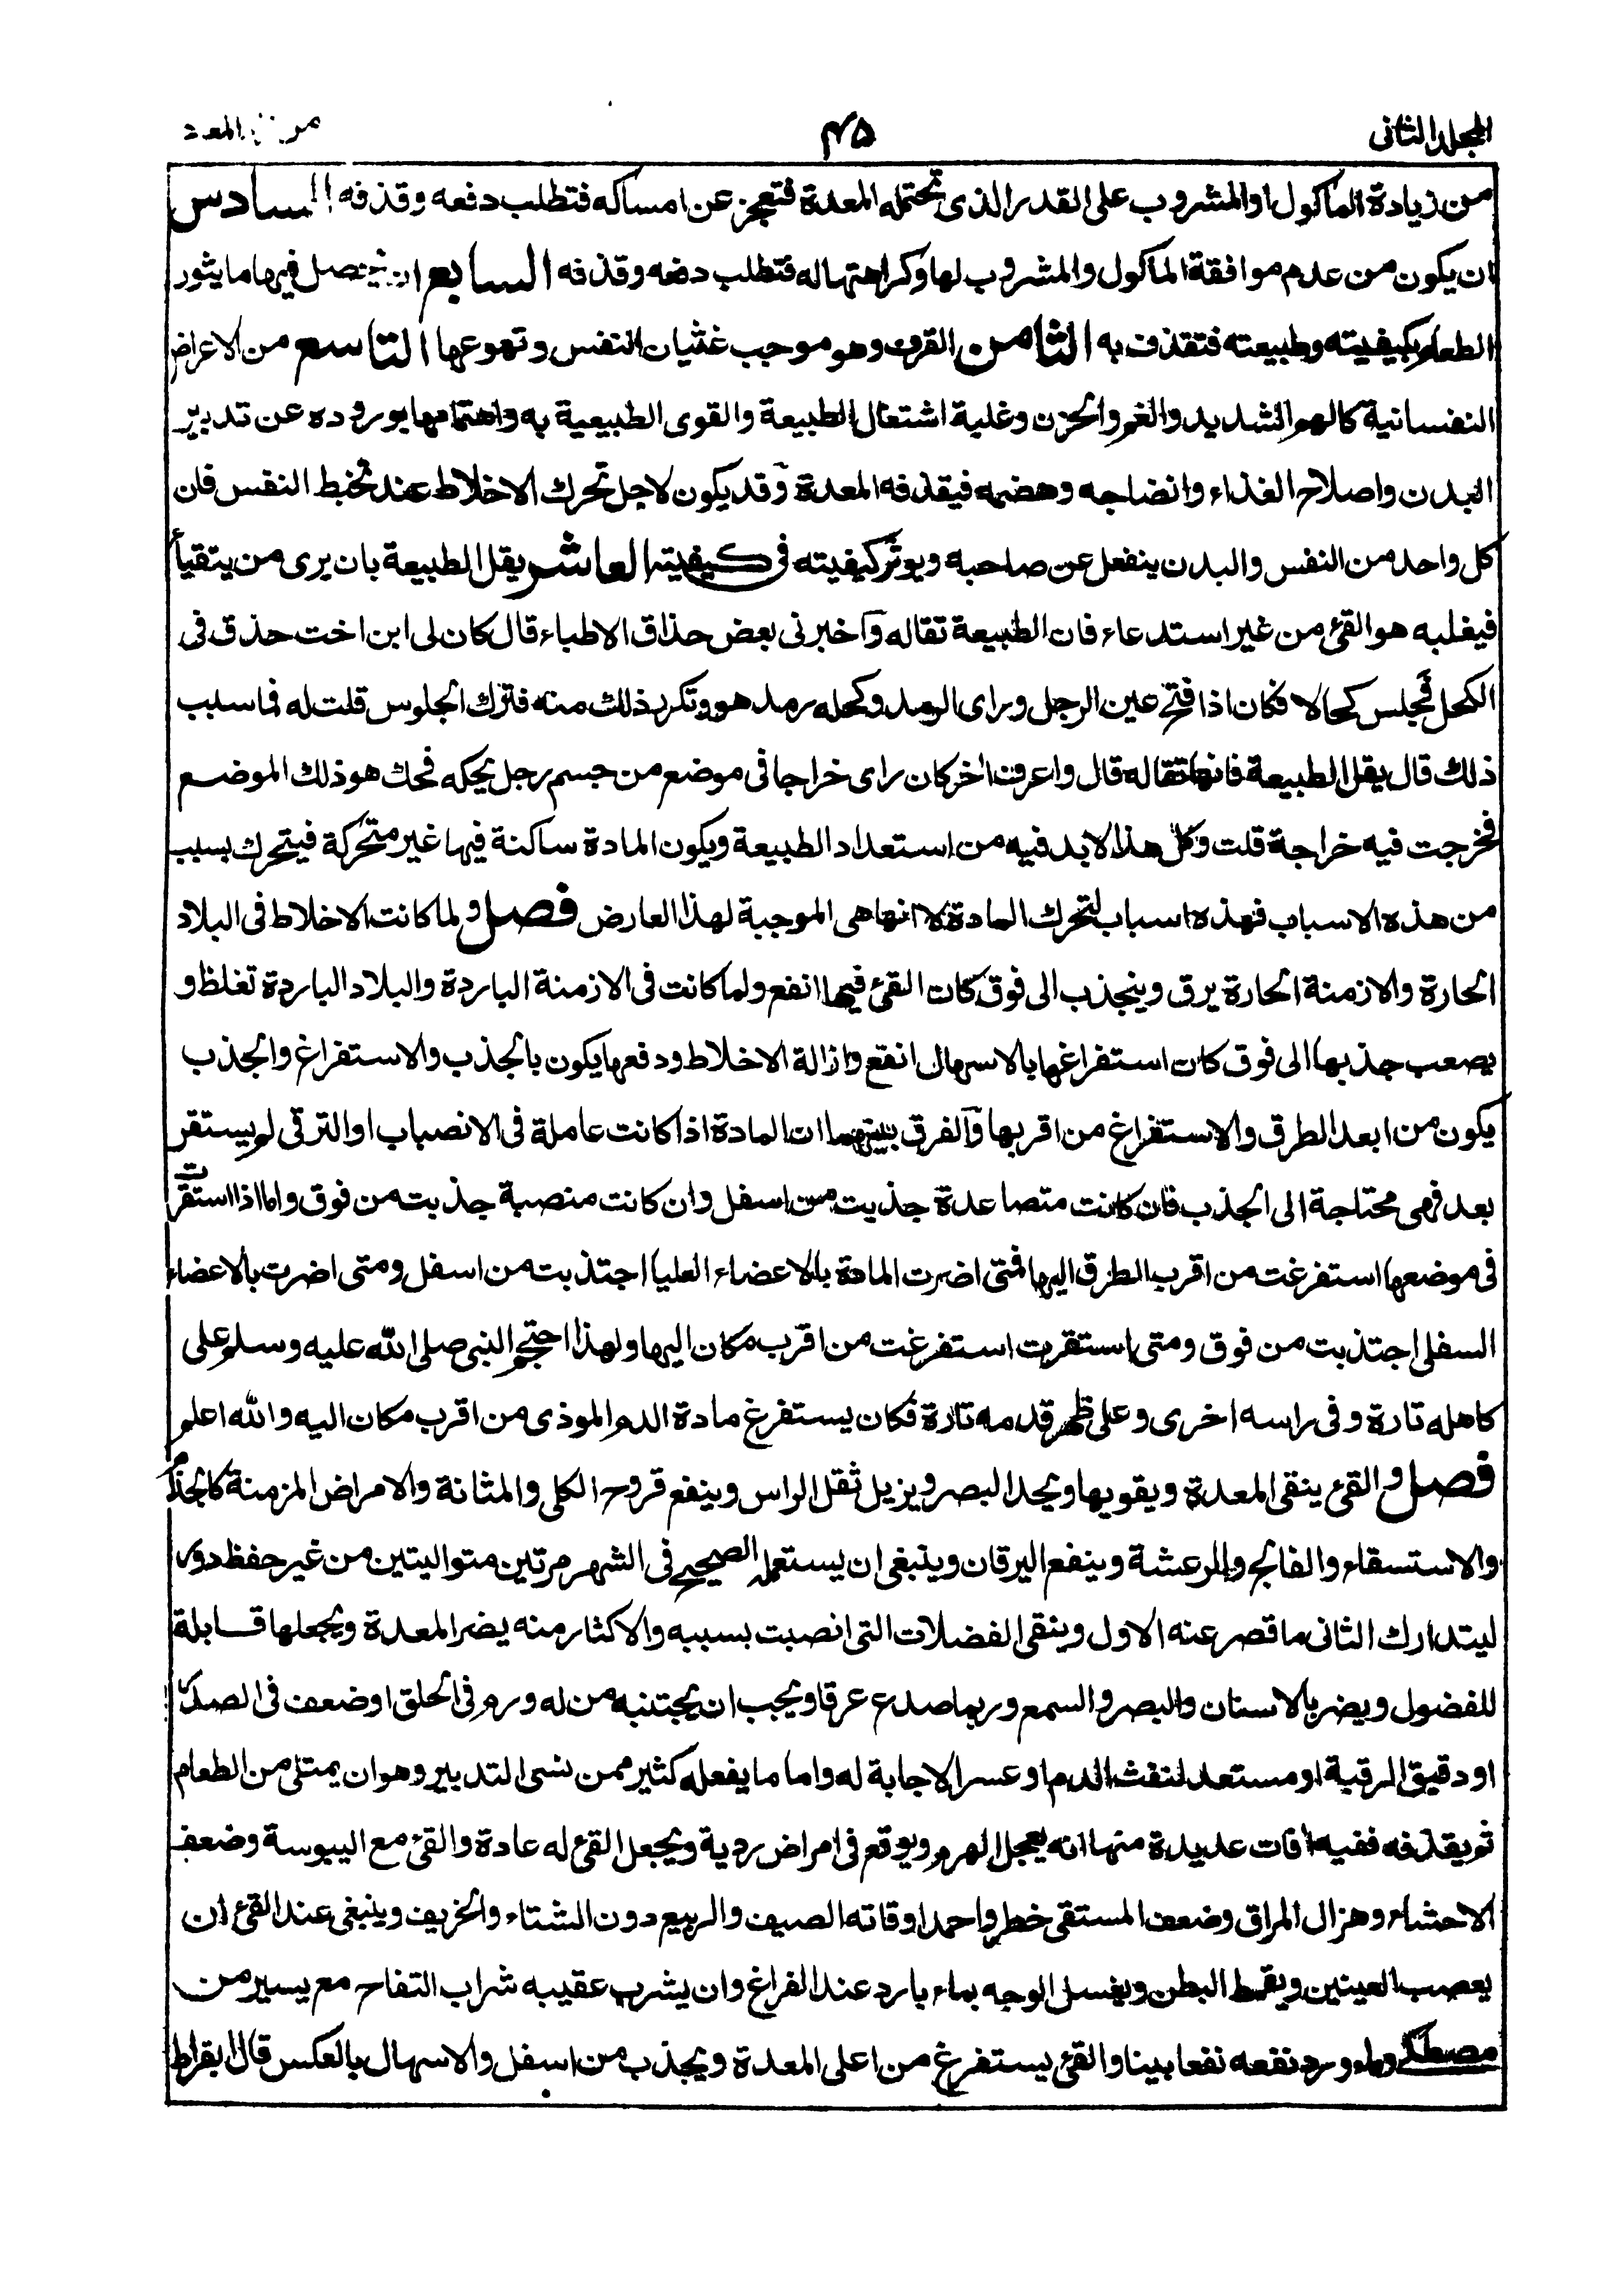 المجلد الثاني
٤٥
من زيادة الماكول او المشروب على القدر الذى تحتمله المعدة فتعجز عن امساكه فتطلب دفعه وقذفه السادس
ان يكون من عدم موافقة الماكول والمشروب لها وكراهتها له فتطلب دفعه وقذفه السابع ان يحصل فيها ما يثور
الطعام بكيفيته وطبيعته فتقذف به الثامن القرف وهو موجب غثيان النفس وتهوعها التاسع من الاعراض
النفسانية كالهم الشديد والغم والحزن وغلبة اشتغال الطبيعة والقوى الطبيعية به واهتمامها بوروده عن تدبير
البدن واصلاح الغذاء وانضاجه وهضمه فيقذفه المعدة وقد يكون لاجل تحرك الاخلاط عند تخبط النفس فان
كل واحد من النفس والبدن ينفعل عن صاحبه ويوثر كيفيته فى كيفيته العاشر يقل الطبيعة بان يرى من يتقيأ
فيغلبه هو القئ من غير استدعاء فان الطبيعة تقاله وآخبرنى بعض حذاق الاطباء قال كان لى ابن اخت حذق فى
الكحل فجلس كحالا فكان اذا فتح عين الرجل وراى الرمد وكحله رمد هو وتكرر ذلك منه فترك الجلوس قلت له فما سبب
ذلك قال يقل الطبيعة فانها تقاله قال واعرف اخر كان راى خراجا فى موضع من جسم رجل يحكه فحك هو ذلك الموضع
فخرجت فيه خراجة قلت وكل هذا لا بد فيه من استعداد الطبيعة ويكون المادة ساكنة فيها غير متحركة فيتحرك بسبب
من هذه الاسباب فهذه اسباب لتحرك المادة لا انها هى الموجبة لهذا العارض فصل ولما كانت الاخلاط فى البلاد
الحارة والازمنة الحارة يرق وينجذب الى فوق كان القئ فيها انفع ولما كانت فى الازمنة الباردة والبلاد الباردة تغلظ و
يصعب جذبها الى فوق كان استفراغها بالاسهال انفع وازالة الاخلاط ودفعها يكون بالجذب والاستفراغ والجذب
يكون من ابعد الطرق والاستفراغ من اقربها والفرق بينهما ان المادة اذا كانت عاملة فى الانصباب او الترقى لم يستقر
بعد فهى محتاجة الى الجذب فان كانت متصاعدة جذبت من اسفل وان كانت منصبة جذبت من فوق واما اذا استقرت
فى موضعها استفرغت من اقرب الطرق اليها فمتى اضرت المادة بالاعضاء العليا اجتذبت من اسفل ومتى اضرت بالاعضاء
السفلى اجتذبت من فوق ومتى استقرت استفرغت من اقرب مكان اليها ولهذا احتجم النبى صلى الله عليه وسلم على
كاهله تارة وفى راسه اخرى وعلى ظهر قدمه تارة فكان يستفرغ مادة الدم الموذى من اقرب مكان اليه والله اعلم
فصل والقئ ينقى المعدة ويقويها ويحد البصر ويزيل ثقل الراس وينفع قروح الكلى والمثانة والامراض المزمنة كالجذام
والاستسقاء والفالج والرعشة وينفع اليرقان وينبغى ان يستعمله الصحيح فى الشهر مرتين متواليتين من غير حفظ دور
ليتدارك الثانى ما قصر عنه الاول وينقى الفضلات التى انصبت بسببه والاكثار منه يضر المعدة ويجعلها قابلة
للفضول ويضر بالاسنان والبصر والسمع وربما صدع عرقا ويجب ان يجتنبه من له ورم فى الحلق او ضعف فى الصدر
او دقيق الرقبة او مستعد لنفث الدم او عسر الاجابة له واما ما يفعله كثير ممن نسى التدبير وهو ان يمتلى من الطعام
ثم يقذفه ففيه افات عديدة منها انه يعجل الهرم ويوقع فى امراض ردية ويجعل القئ له عادة والقئ مع اليبوسة وضعف
الاحشاء وهزال المراق وضعف المستقى خطر واحمد اوقاته الصيف والربيع دون الشتاء والخريف وينبغى عند القئ ان
يعصب العينين ويقمط البطن ويغسل الوجه بماء بارد عند الفراغ وان يشرب عقيبه شراب التفاح مع يسير من
مصطكى وماء ورد نفعه نفعا بينا والقئ يستفرغ من اعلى المعدة ويجذب من اسفل والاسهال بالعكس قال ابقراط